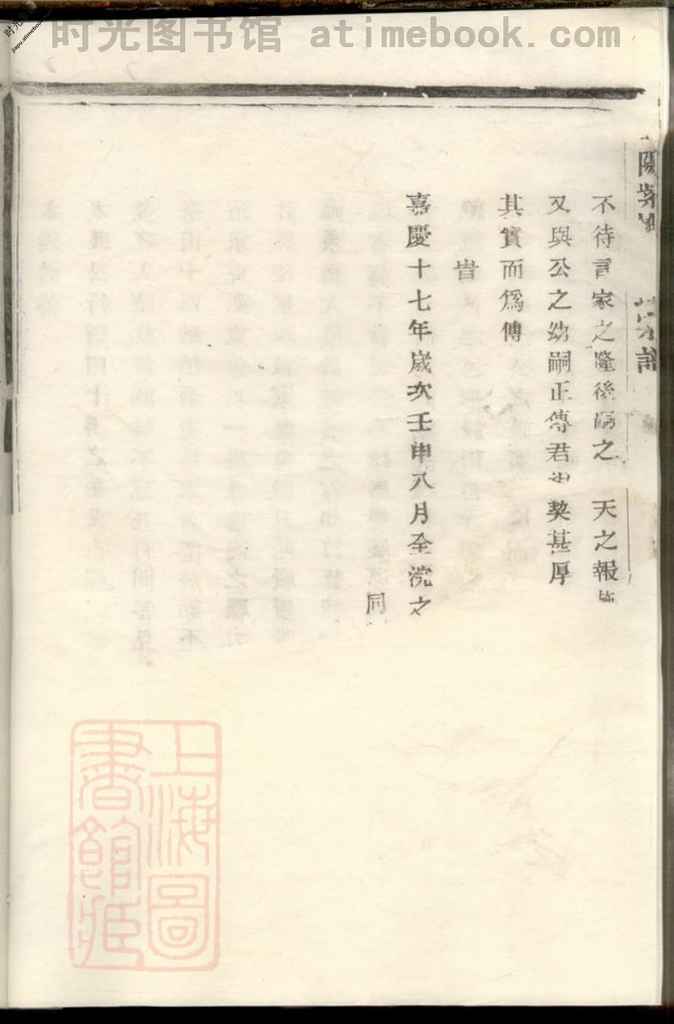 时光图书馆 atimebook.com
不待言家之隆後嗣之 天之報施
又與公之幼嗣正傳君 契甚厚
其實而爲傳
旹
嘉慶十七年歲次壬申八月全浣之
同
上海圖
書館藏